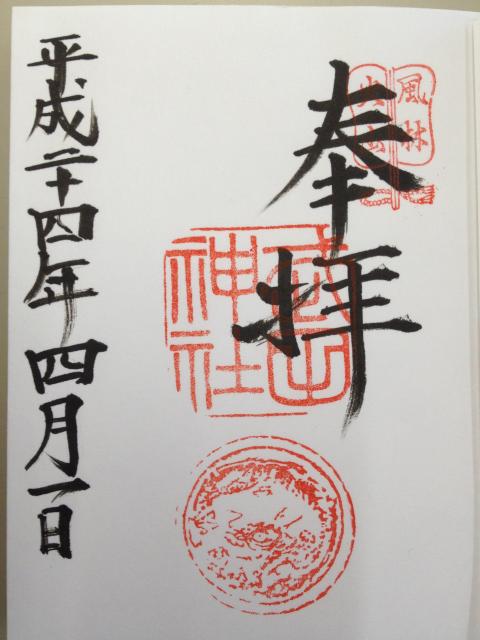 風林
火山
奉拝
武田
神社
平成二十四年四月一日